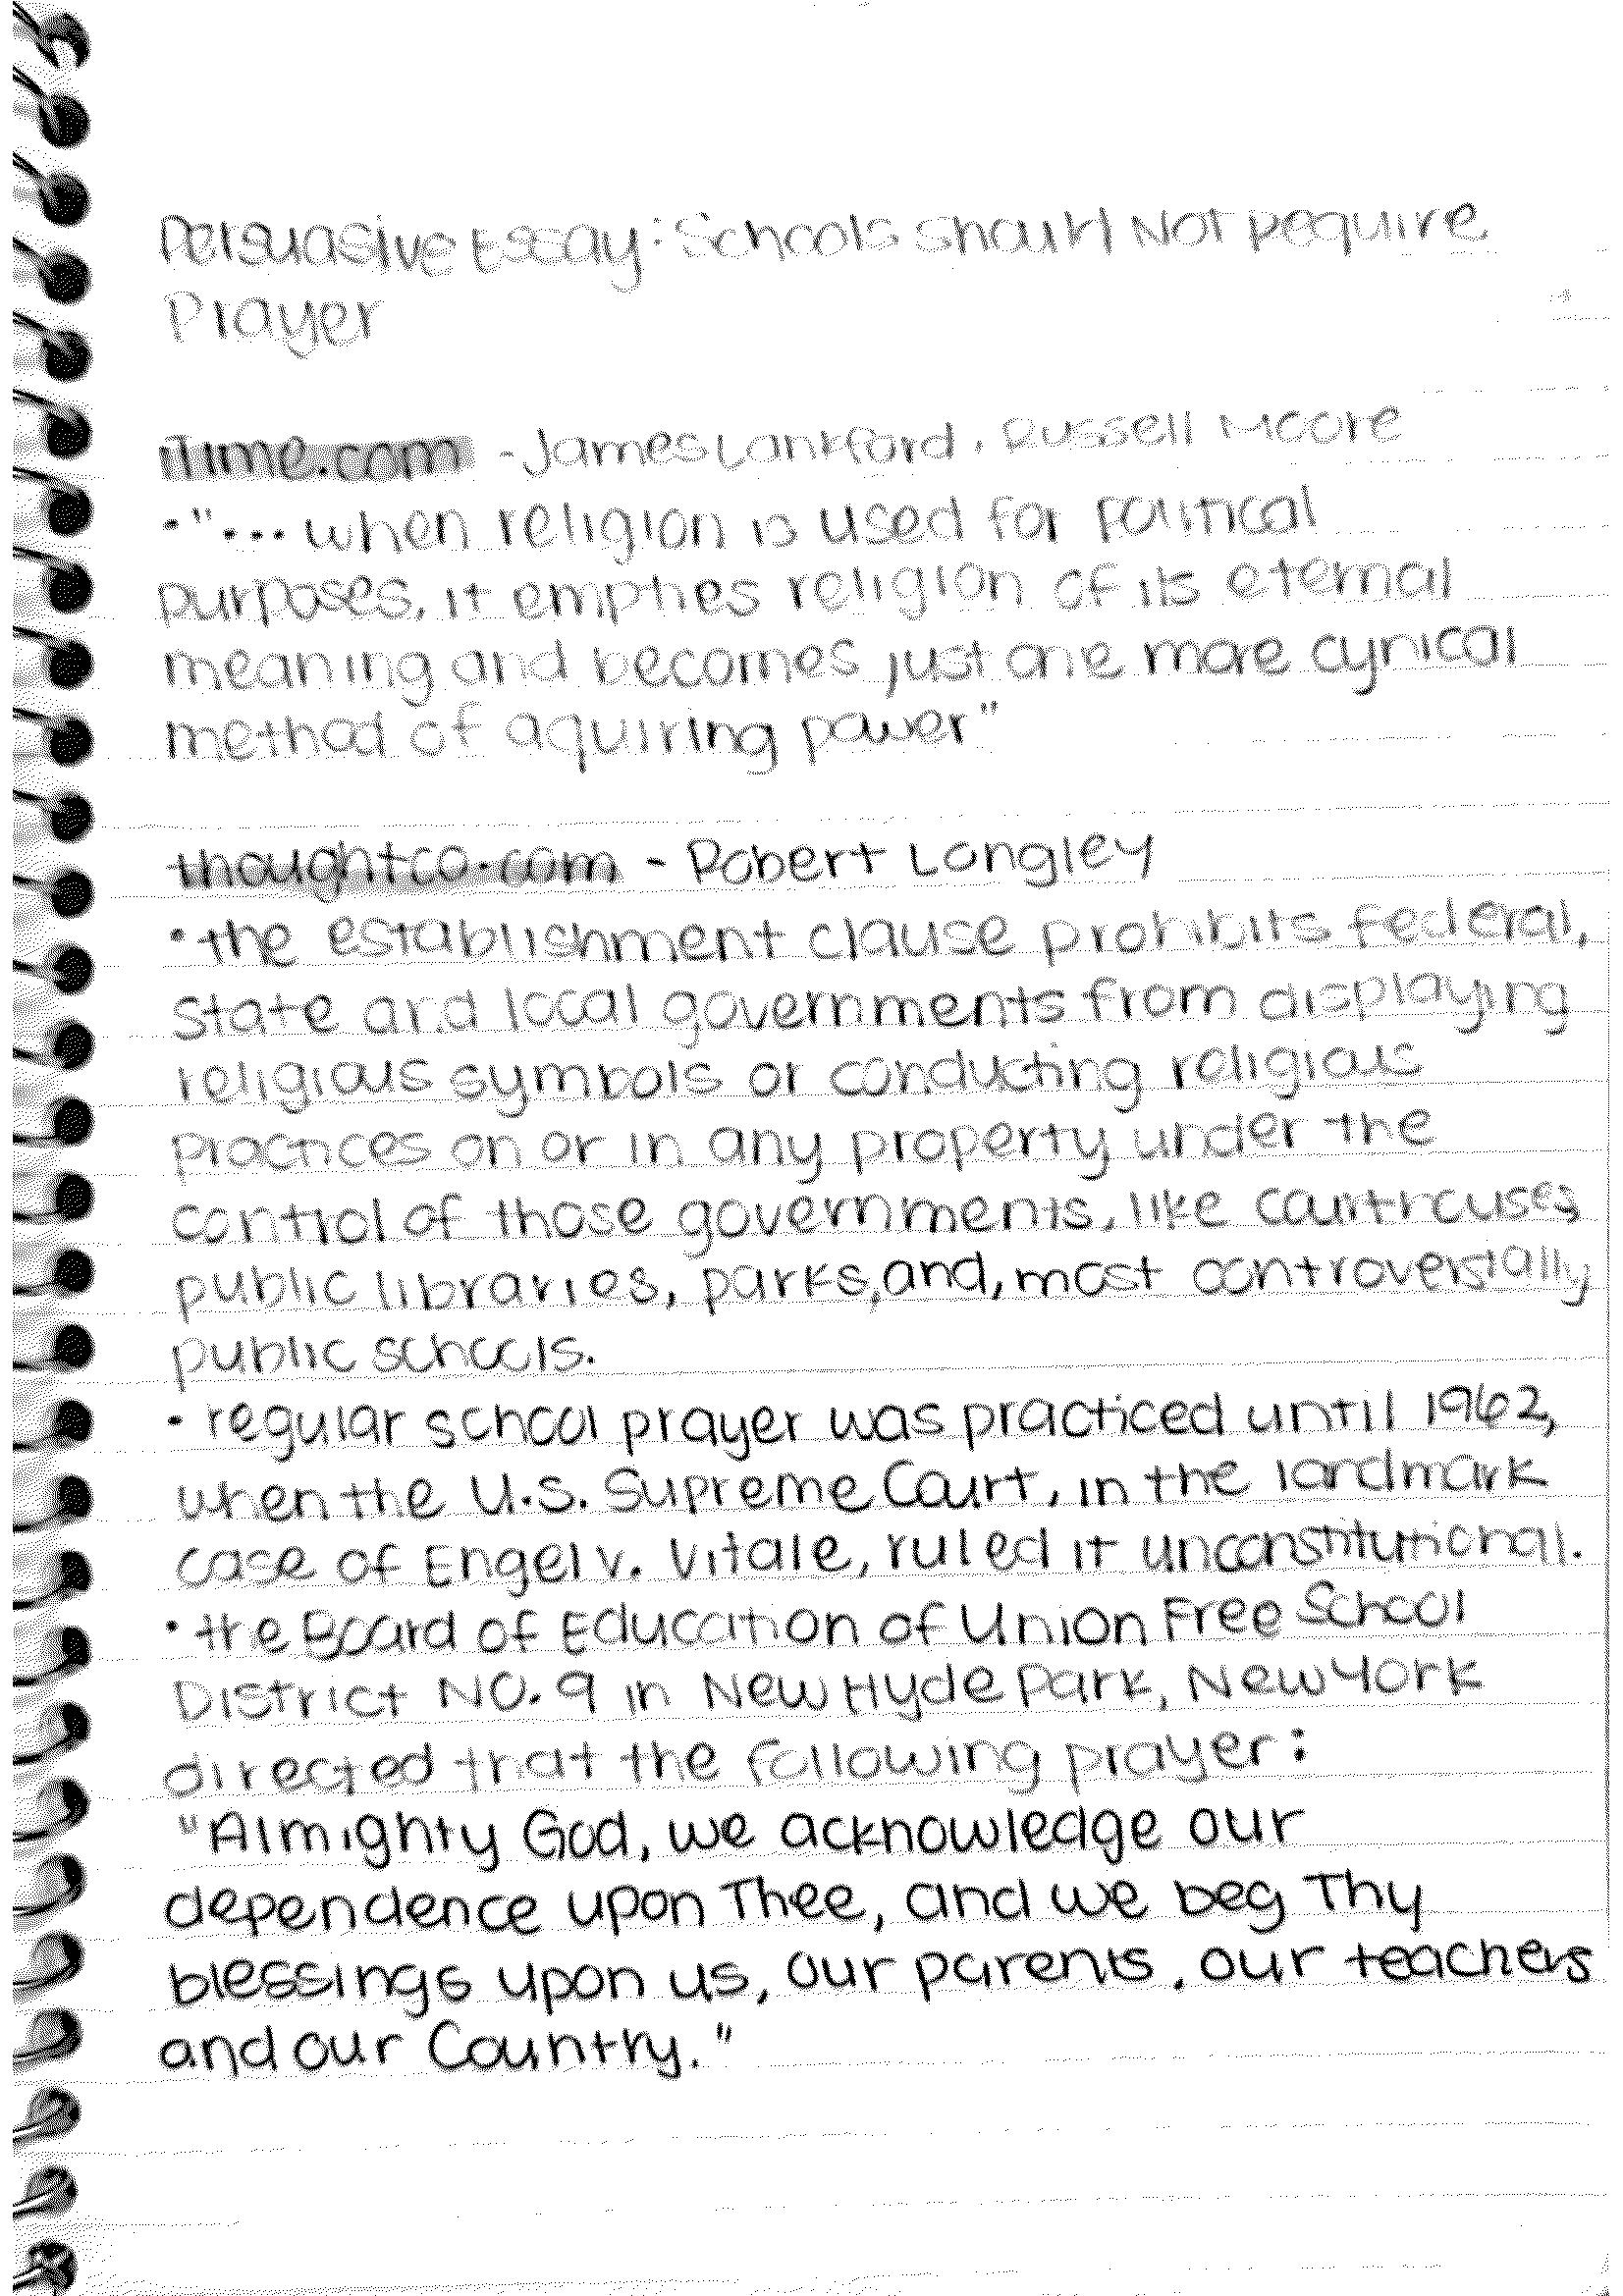 Persuasive Essay: Schools Should Not Require
Prayer
Time.com - James Lankford, Russell Moore
• "... when religion is used for political
purposes, it empties religion of its eternal
meaning and becomes just one more cynical
method of aquiring power"
thoughtco.com - Robert Longley
• the establishment clause prohibits federal,
state and local governments from displaying
religious symbols or conducting religious
practices on or in any property under the
control of those governments, like courthouses,
public libraries, parks, and, most controversially
public schools.
• regular school prayer was practiced until 1962,
when the U.S. Supreme Court, in the landmark
case of Engel v. Vitale, ruled it unconstitutional.
• the Board of Education of Union Free School
District NO. 9 in New Hyde Park, New York
directed that the following prayer:
"Almighty God, we acknowledge our
dependence upon Thee, and we beg Thy
blessings upon us, our parents, our teachers
and our Country."